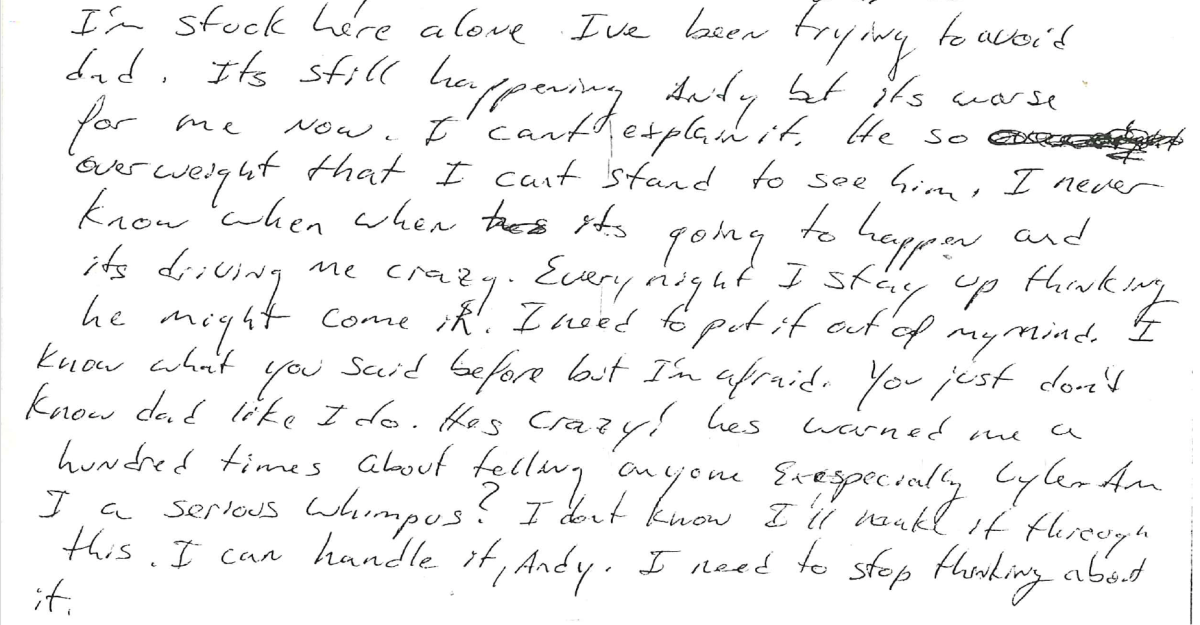 I'm stuck here alone. I've been trying to avoid
dad. Its still happening Andy but its worse
for me now. I can't explain it. He so
overweight that I cant stand to see him, I never
know when when its going to happen and
its driving me crazy. Every night I stay up thinking
he might come in. I need to put it out of my mind. I
know what you said before but I'm afraid. You just don't
know dad like I do. Hes crazy! hes warned me a
hundred times about telling anyone especially Lyle. Am
I a serious whimpus? I dont know I'll make it through
this. I can handle it, Andy. I need to stop thinking about
it.